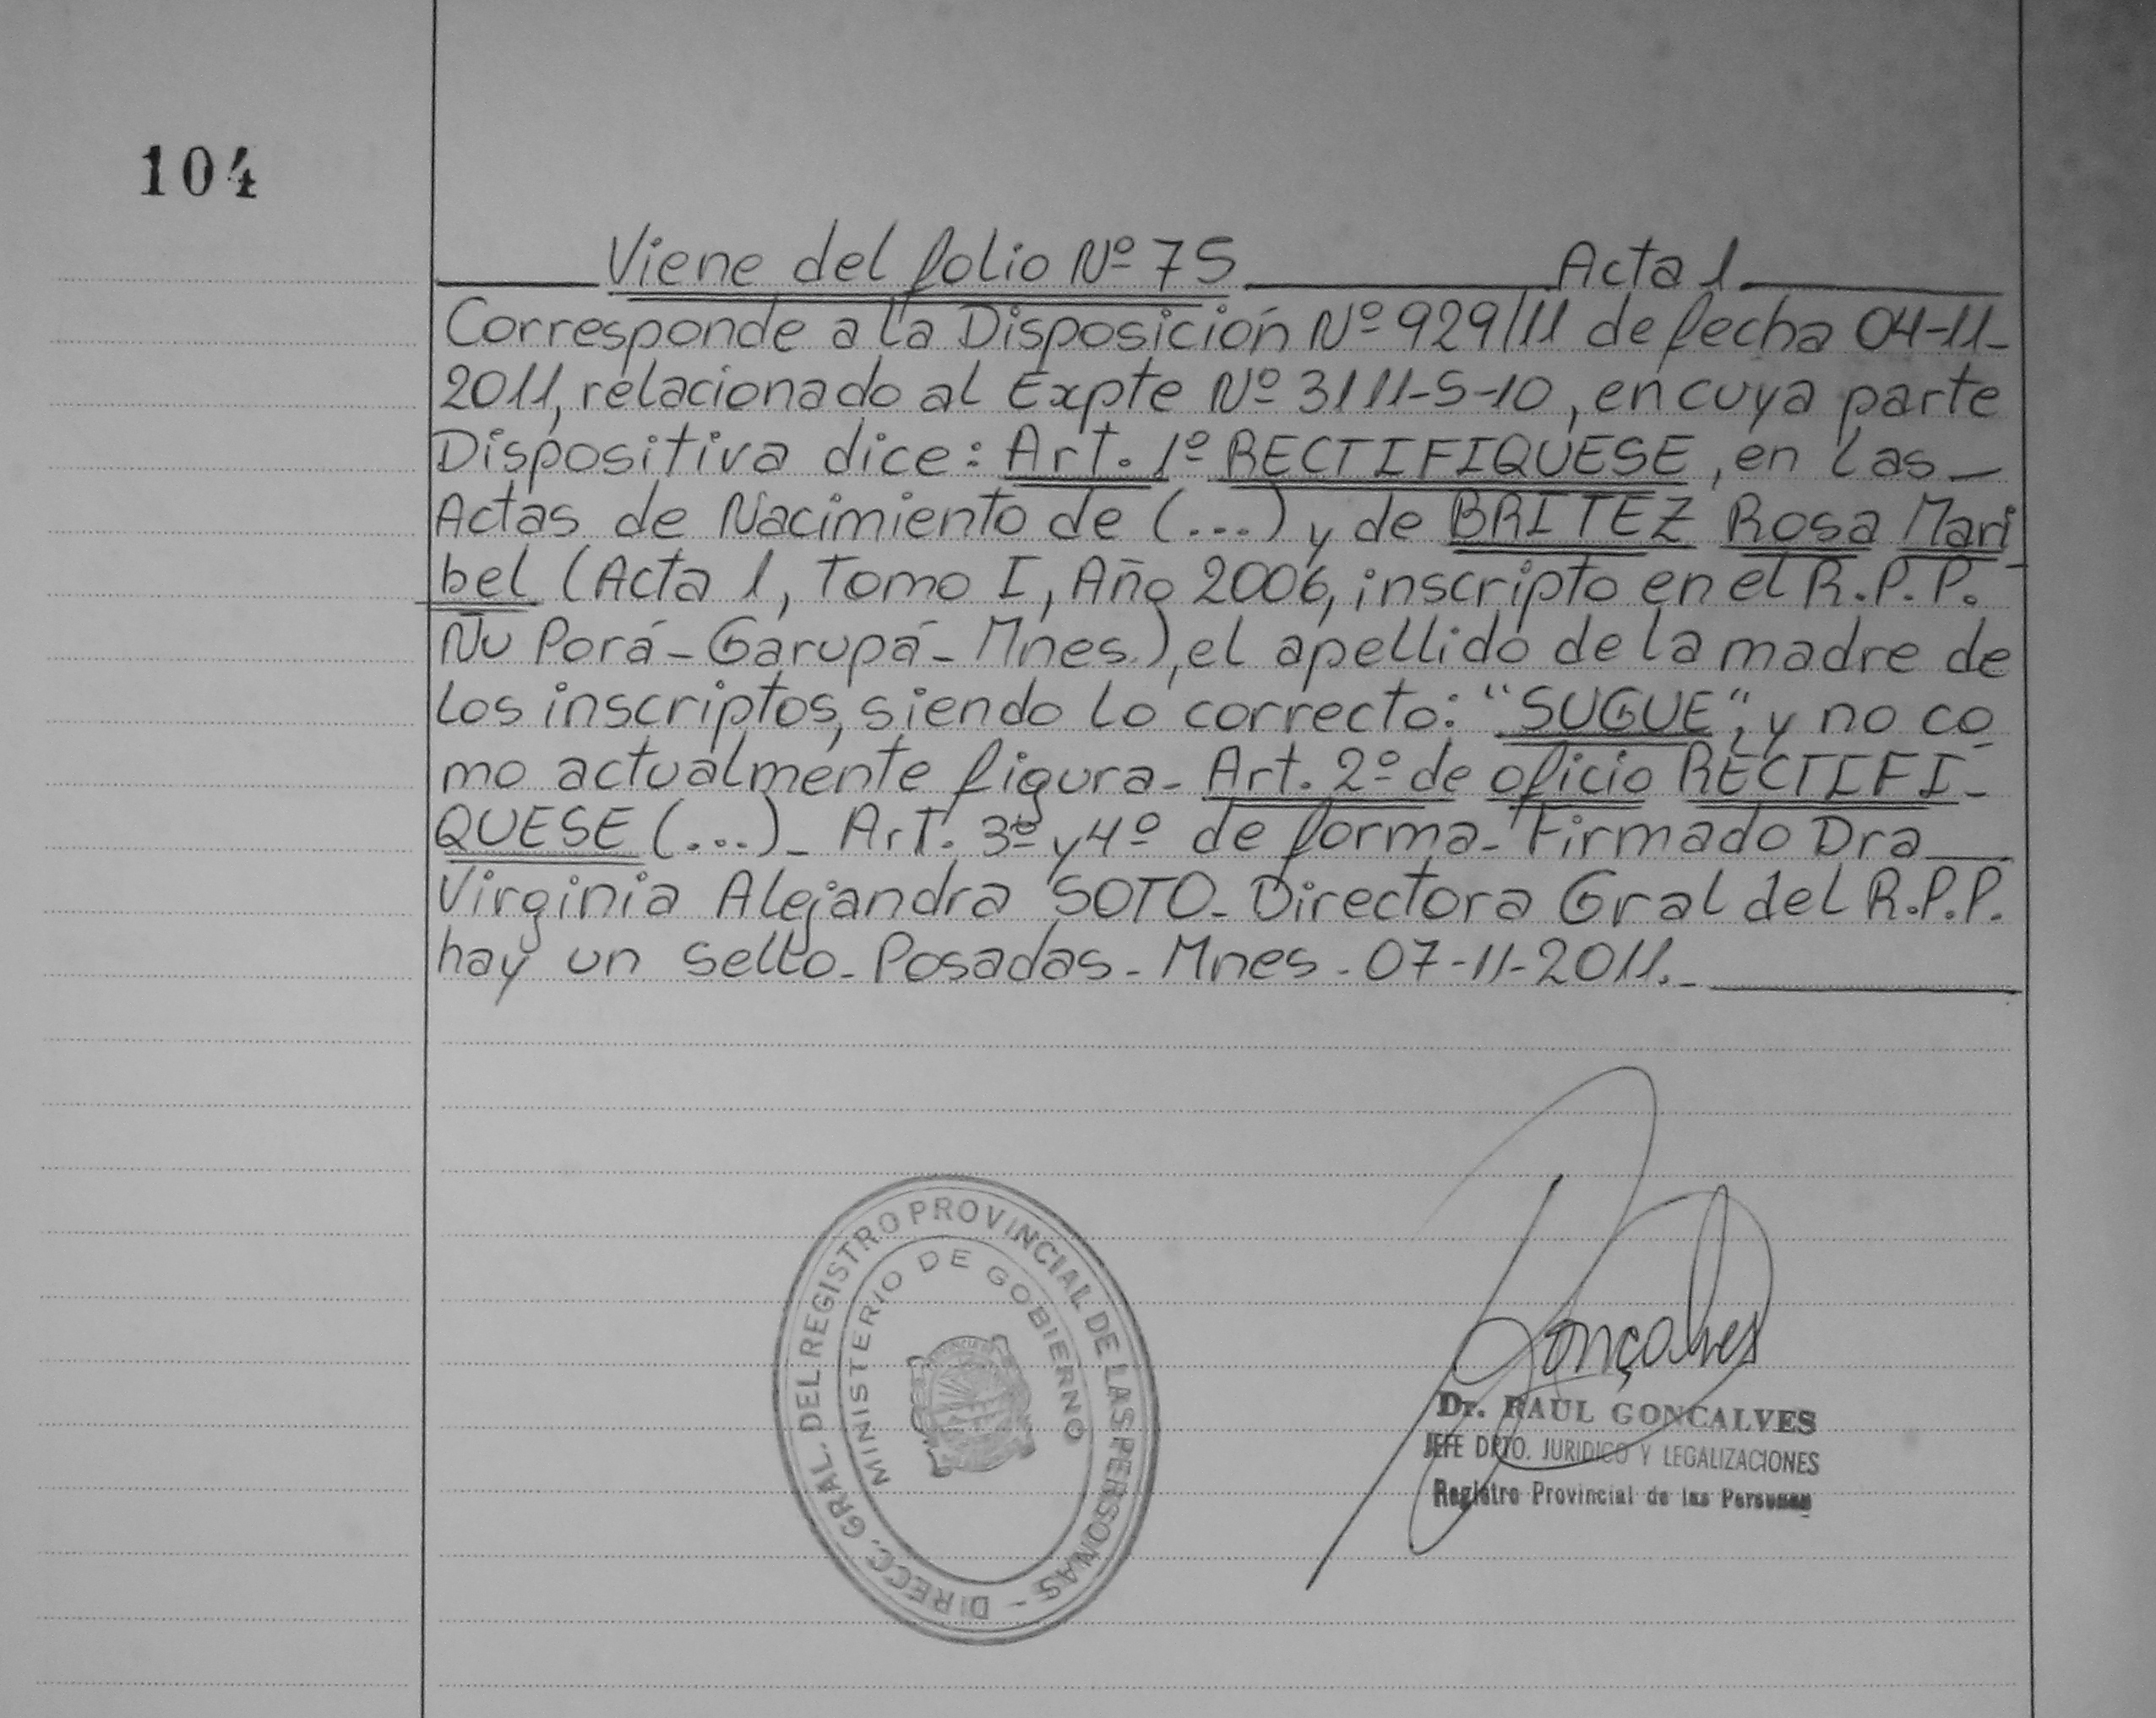 104
Viene del folio Nº 75 Acta 1
Corresponde a la Disposición Nº 929/11 de fecha 04-11-
2011, relacionado al Expte Nº 3111-S-10, en cuya parte
Dispositiva dice: Art. 1º RECTIFIQUESE, en las
Actas de Nacimiento de (...) y de BRITEZ Rosa Mari
bel (Acta 1, Tomo I, Año 2006, inscripto en el R.P.P.
Ñu Porá - Garupá - Mnes.), el apellido de la madre de
los inscriptos, siendo lo correcto: "SUGUE", y no co
mo actualmente figura - Art. 2º de oficio RECTIFI-
QUESE (...) - Art. 3º y 4º de forma - Firmado Dra
Virginia Alejandra SOTO - Directora Gral del R.P.P.
hay un sello - Posadas - Mnes - 07-11-2011.-
DIRECC. GRAL. DEL REGISTRO PROVINCIAL DE LAS PERSONAS -
MINISTERIO DE GOBIERNO
Gonçalves
Dr. RAUL GONCALVES
JEFE DPTO. JURIDICO Y LEGALIZACIONES
Registro Provincial de las Personas